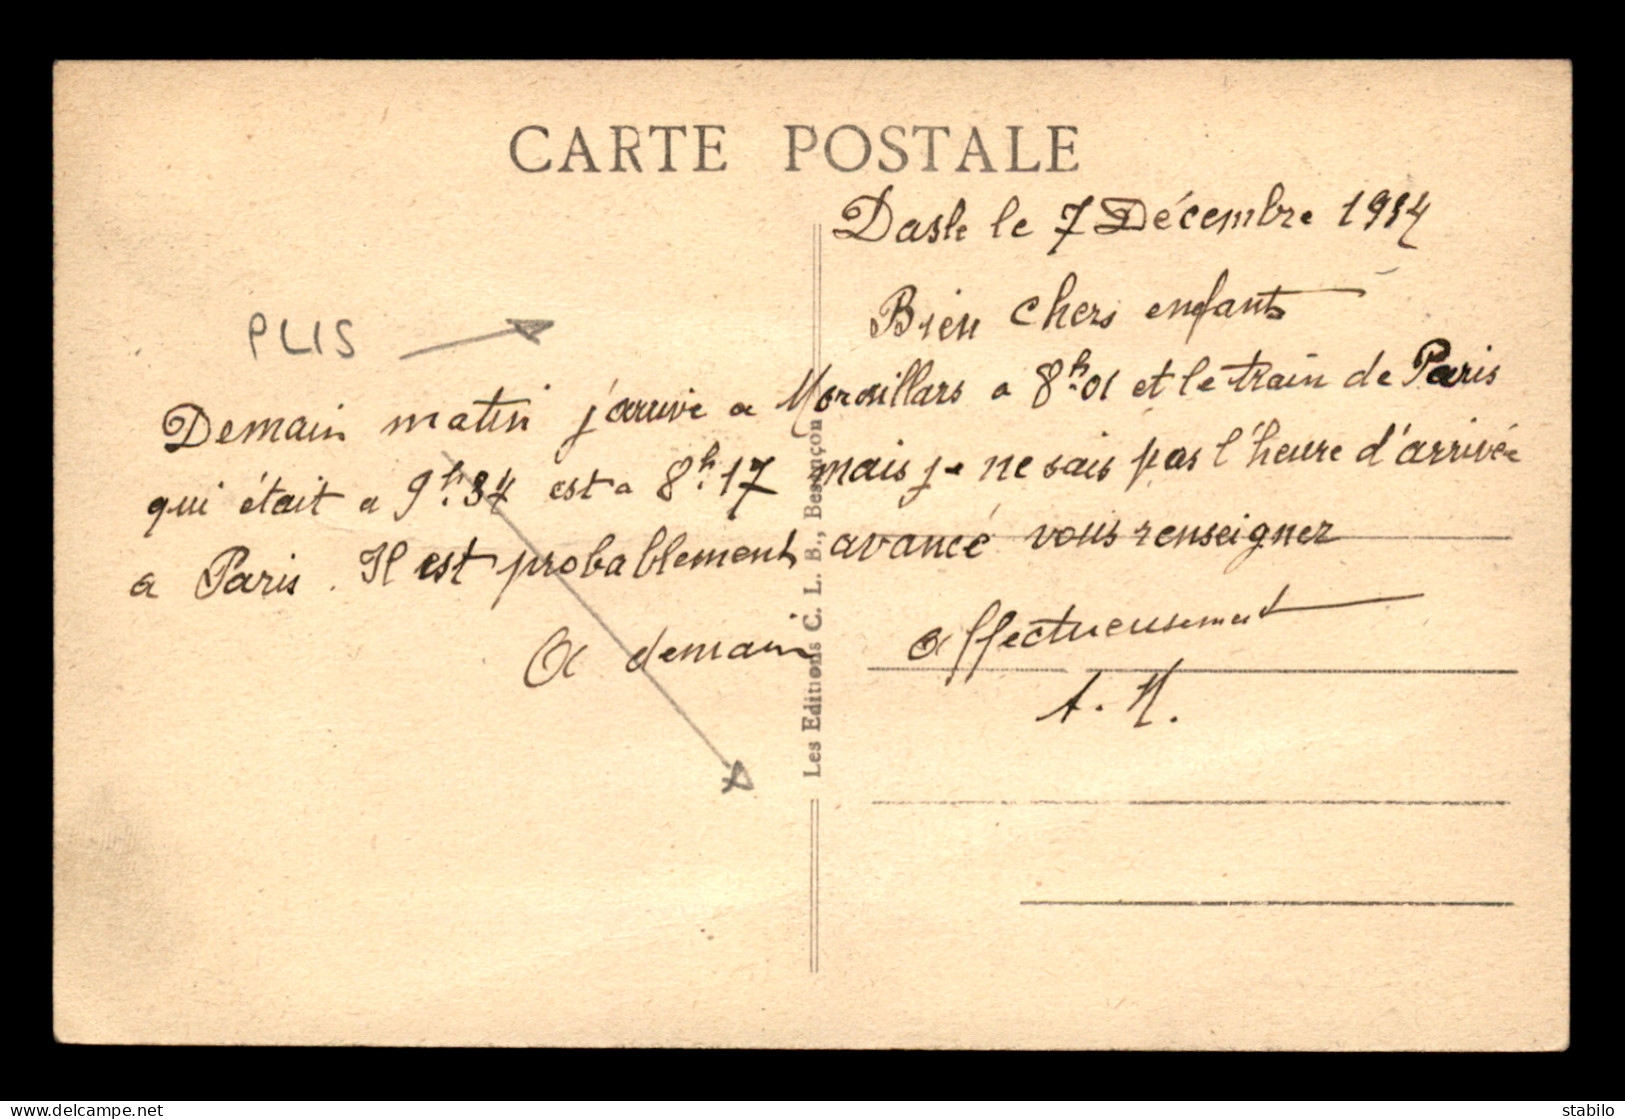 CARTE POSTALE
Dasle le 7 Décembre 1934
Bien chers enfants
PLIS
Demain matin j'arrive a Morvillars a 8h.01 et le train de Paris
qui était a 9h.34 est a 8h.17 mais je ne sais pas l'heure d'arrivée
a Paris. Il est probablement avancé vous renseigner
A demain affectueusement
A. N.
Les Editions C. L. B., Besançon
delcampe.net
stabilo